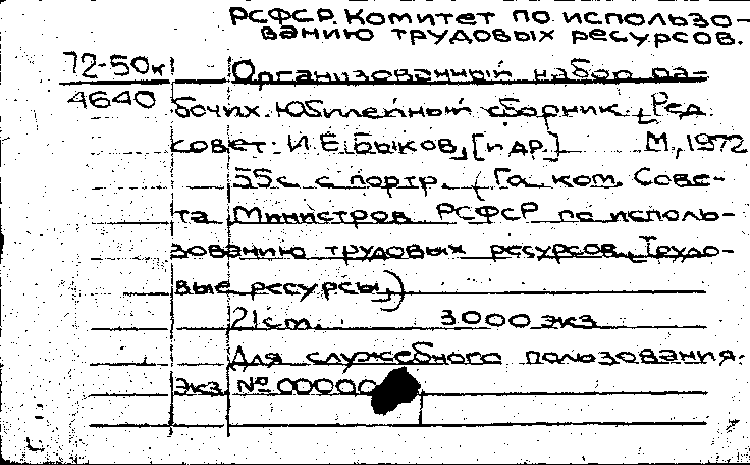 РСФСР. Комитет по использо-
ванию трудовых ресурсов.
72-50к
Организованный набор ра-
4640
бочих. Юбилейный сборник. [Ред.
совет: И.Е. Быков, [и др.] М., 1972
55с. с портр. (Гос. ком. Сове-
та Министров РСФСР по исполь-
зованию трудовых ресурсов. Трудо-
вые ресурсы.)
21см. 3000 экз.
Для служебного пользования.
Экз. № 00000